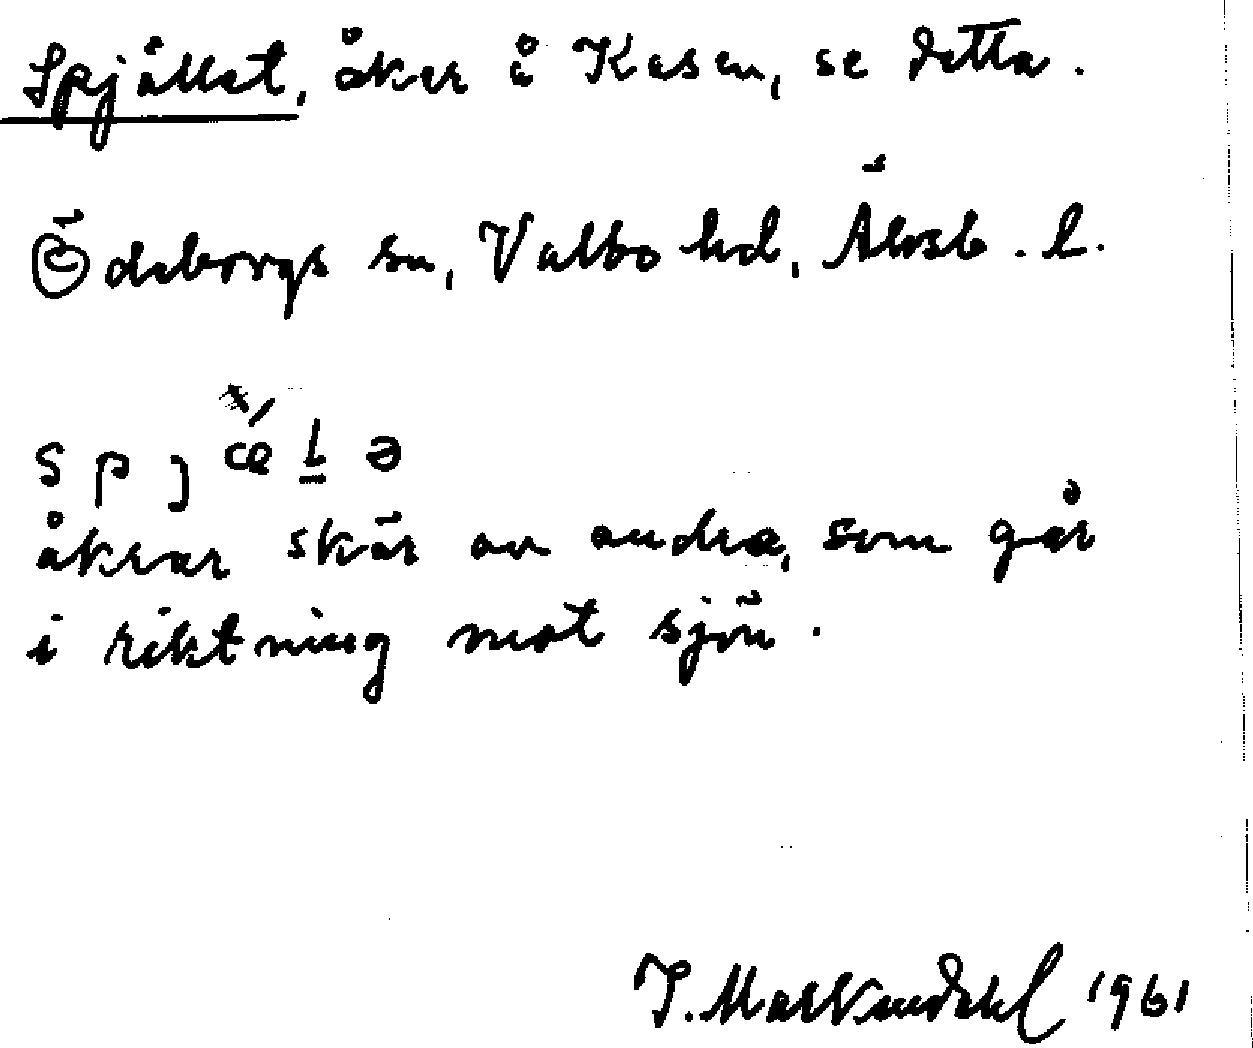 Spjället, åker å Kasen, se detta.
Ödeborgs sn, Valbo hd, Älvsb. l.
spjǽḻə
åkrar skär av andra, som går
i riktning mot sjön.
1961